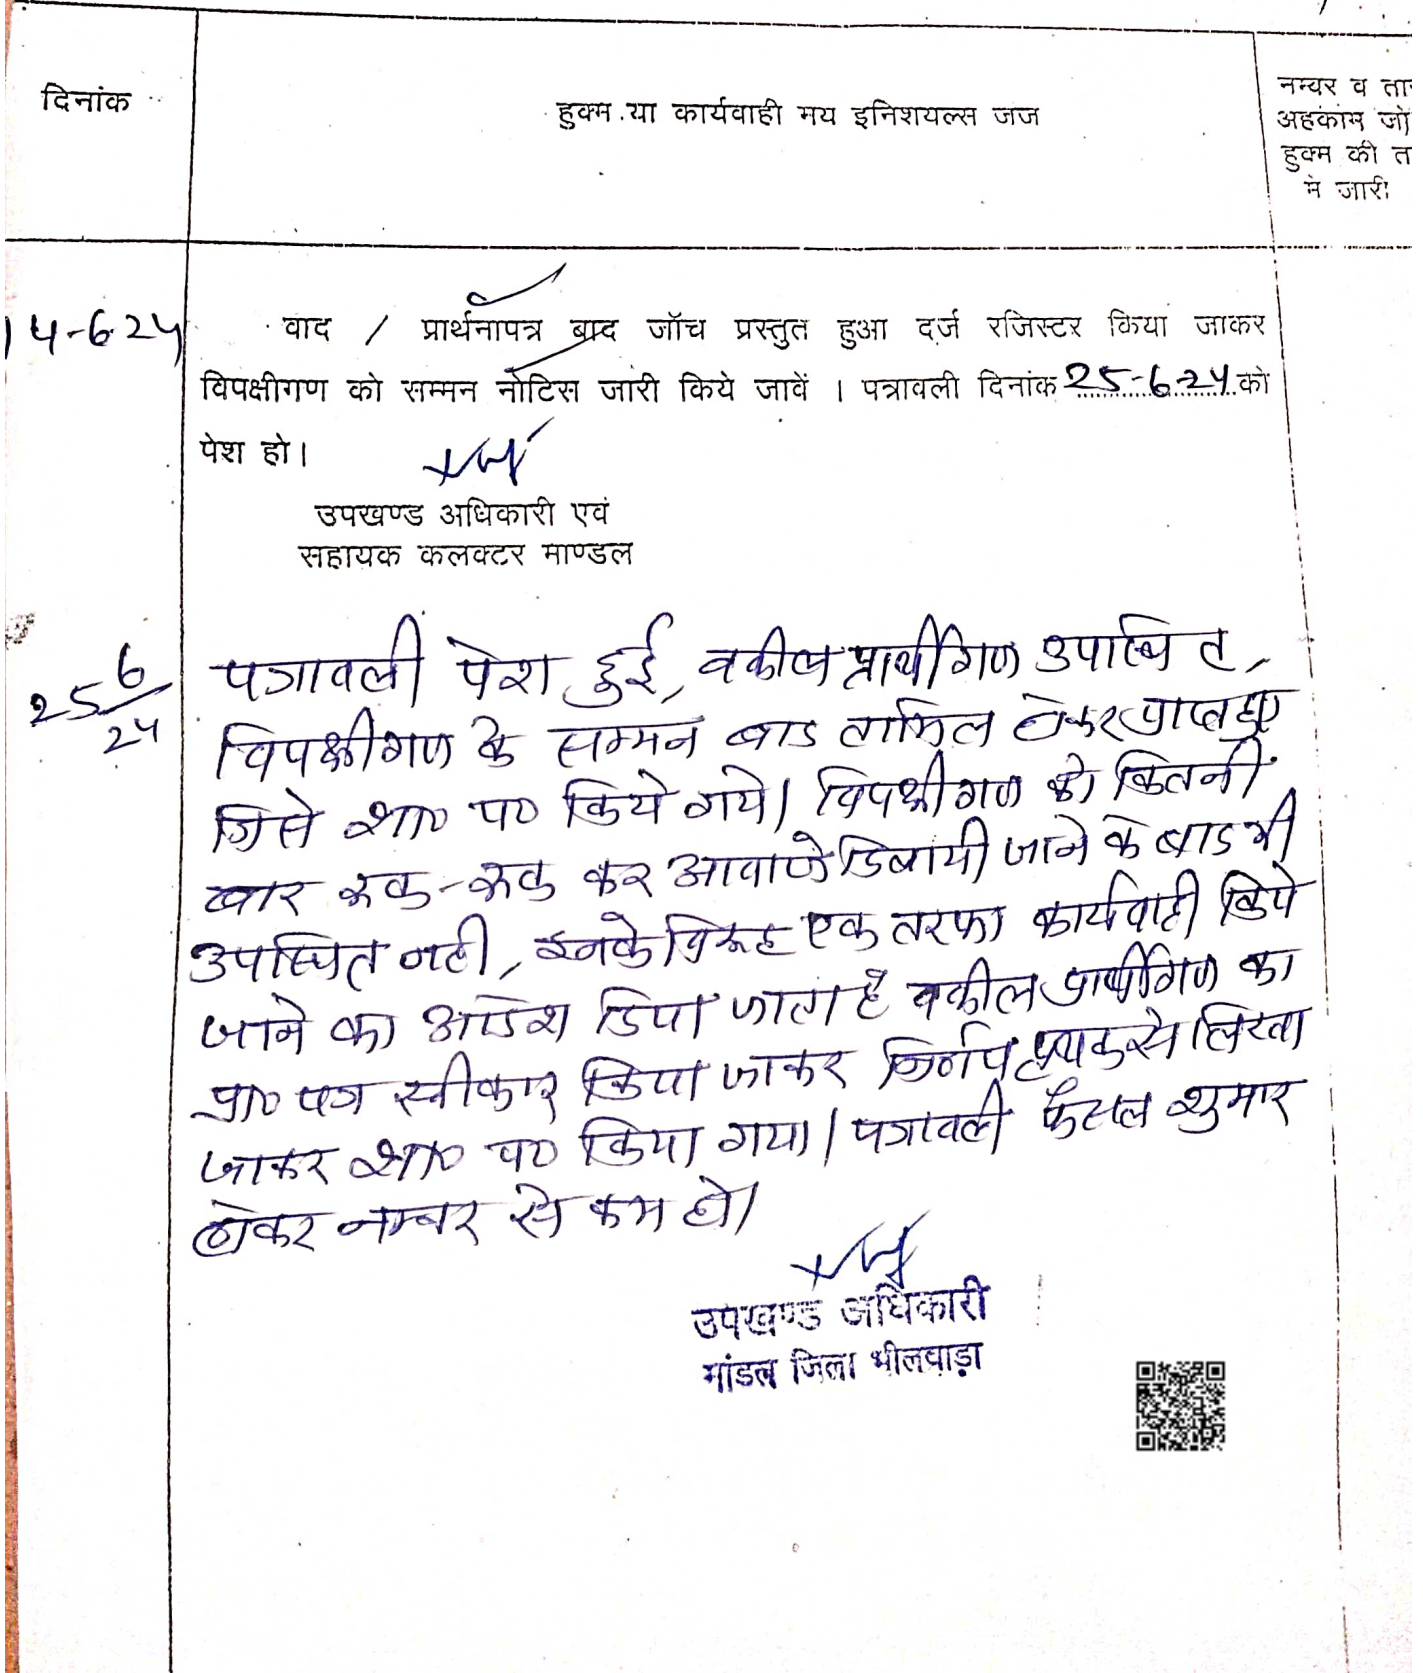 दिनांक
हुक्म या कार्यवाही मय इनिशयल्स जज
नम्बर व ता
अहकाम जो
हुक्म की त
में जारी
14-6-24
वाद / प्रार्थनापत्र बाद जॉच प्रस्तुत हुआ दर्ज रजिस्टर किया जाकर
विपक्षीगण को सम्मन नोटिस जारी किये जावें । पत्रावली दिनांक 25-6-24 को
पेश हो।
उपखण्ड अधिकारी एवं
सहायक कलक्टर माण्डल
25 6/24
पत्रावली पेश हुई, वकील प्रार्थीगण उपस्थित,
विपक्षीगण के सम्मन बाद तामिल होकर प्राप्त हुए
जिसे शा० प० किये गये। विपक्षीगण को कितनी
बार रूक-रूक कर आवाजे दिलायी जाने के बाद भी
उपस्थित नही, इनके विरूद्ध एक तरफा कार्यवाही किये
जाने का आदेश दिया जाता है वकील प्रार्थीगण का
प्रा० पत्र स्वीकार किया जाकर निर्णय पृथक से लिखा
जाकर शा० प० किया गया। पत्रावली फैसल शुमार
होकर नम्बर से कम हो।
उपखण्ड अधिकारी
मांडल जिला भीलवाड़ा